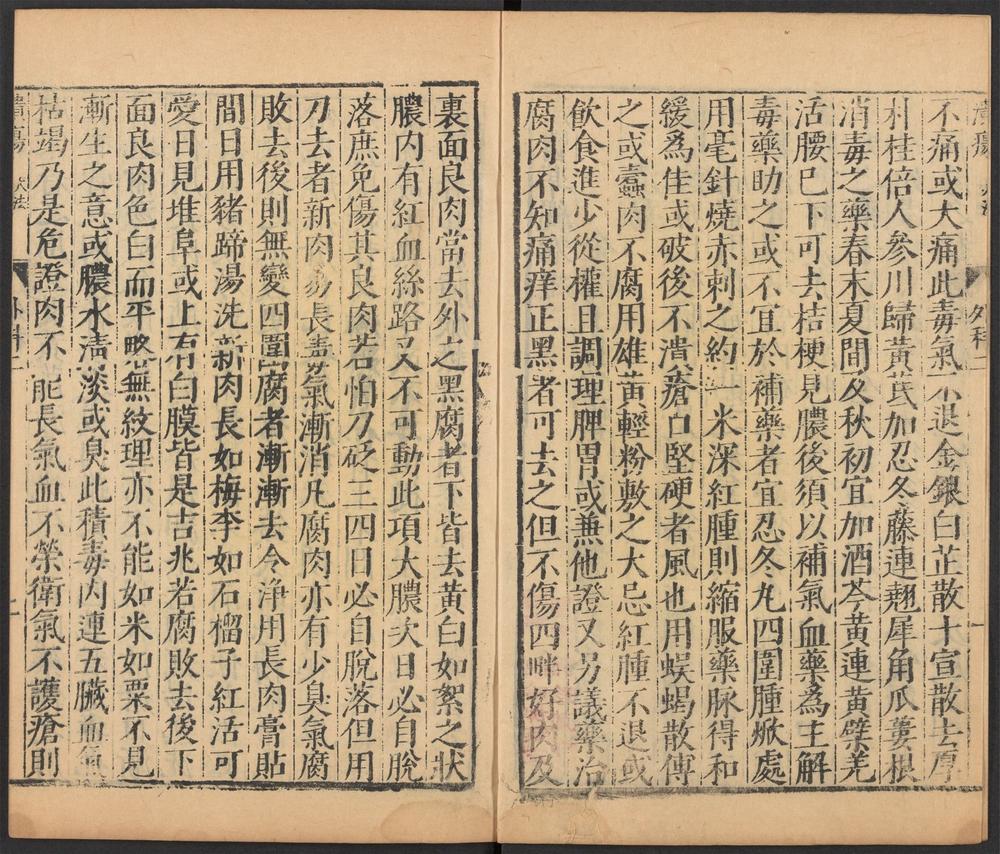 不痛或大痛此毒氣不退金銀白芷散十宣散去厚
朴桂倍人參川歸黃芪加忍冬藤連翹犀角瓜蔞根
消毒之藥春末夏間及秋初宜加酒芩黃連黃檗羌
活腰已下可去桔梗見膿後須以補氣血藥爲主解
毒藥助之或不宜於補藥者宜忍冬丸四圍腫焮處
用毫針燒赤刺之約一米深紅腫則縮服藥脉得和
緩爲佳或破後不潰瘡口堅硬者風也用蜈蝎散傅
之或蠹肉不腐用雄黃輕粉敷之大忌紅腫不退或
飲食進少從權且調理脾胃或兼他證又另議藥治
腐肉不知痛痒正黑者可去之但不傷四畔好肉及
裏面良肉當去外之黑腐者下皆去黃白如絮之狀
膿内有紅血絲路又不可動此項大膿次日必自脫
落庶免傷其良肉若怕刀砭三四日必自脫落但用
刀去者新肉易長盖氣漸消凡腐肉亦有少臭氣腐
敗去後則無變四圍腐者漸漸去令淨用長肉膏貼
間日用豬蹄湯洗新肉長如梅李如石榴子紅活可
愛日見堆阜或上有白膜皆是吉兆若腐敗去後下
面良肉色白而平略無紋理亦不能如米如粟不見
漸生之意或膿水淸淡或臭此積毒内連五臟血氣
枯竭乃是危證肉不能長氣血不榮衛氣不護瘡則
外科一